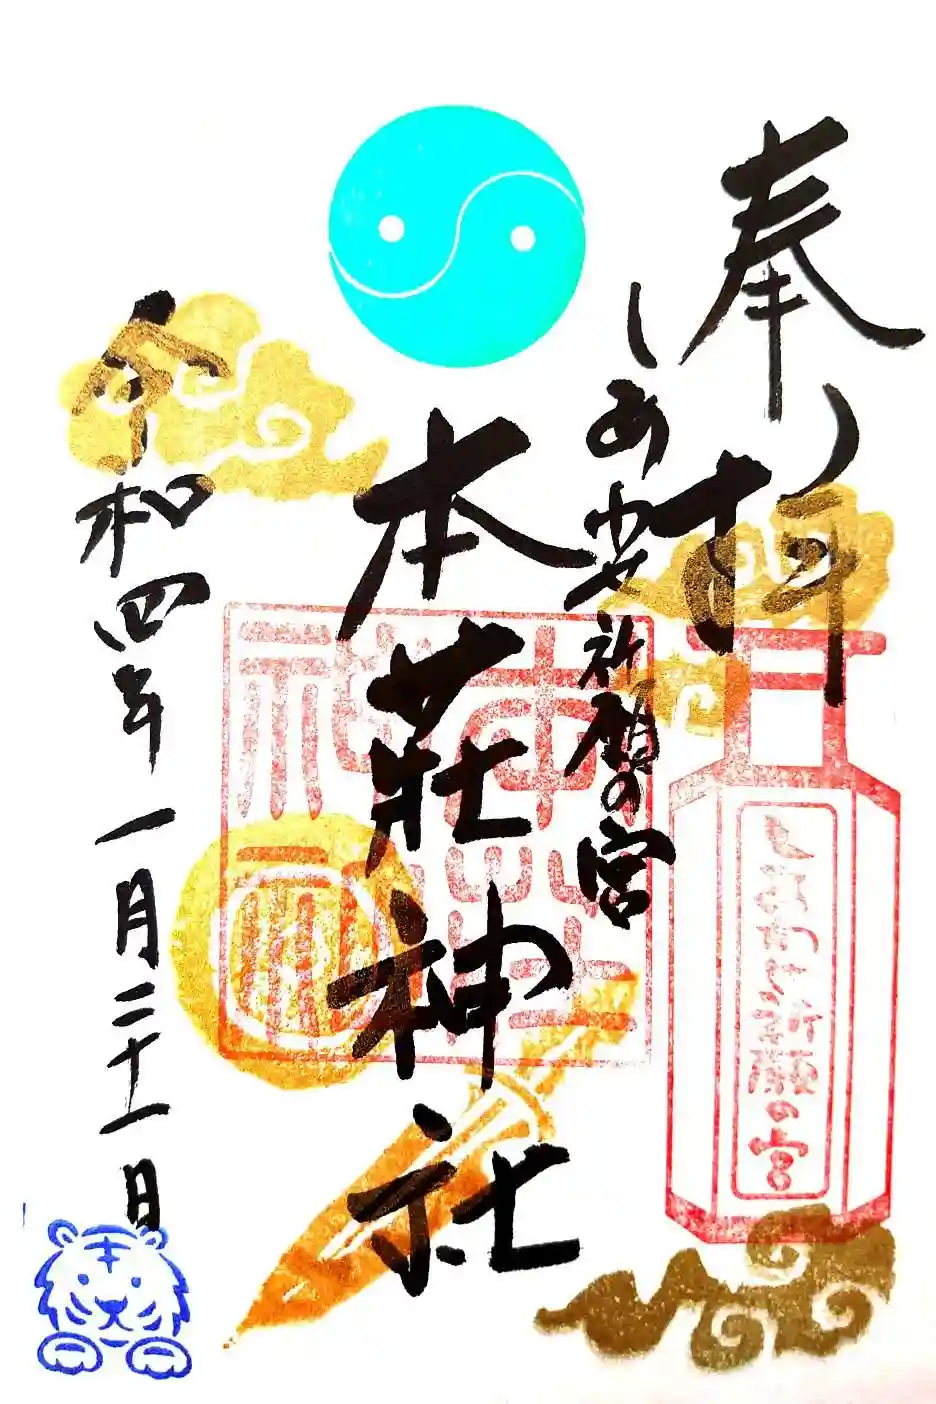 奉拝
しあわせ祈願の宮
本莊神社
令和四年一月二十一日
しあわせ祈願の宮